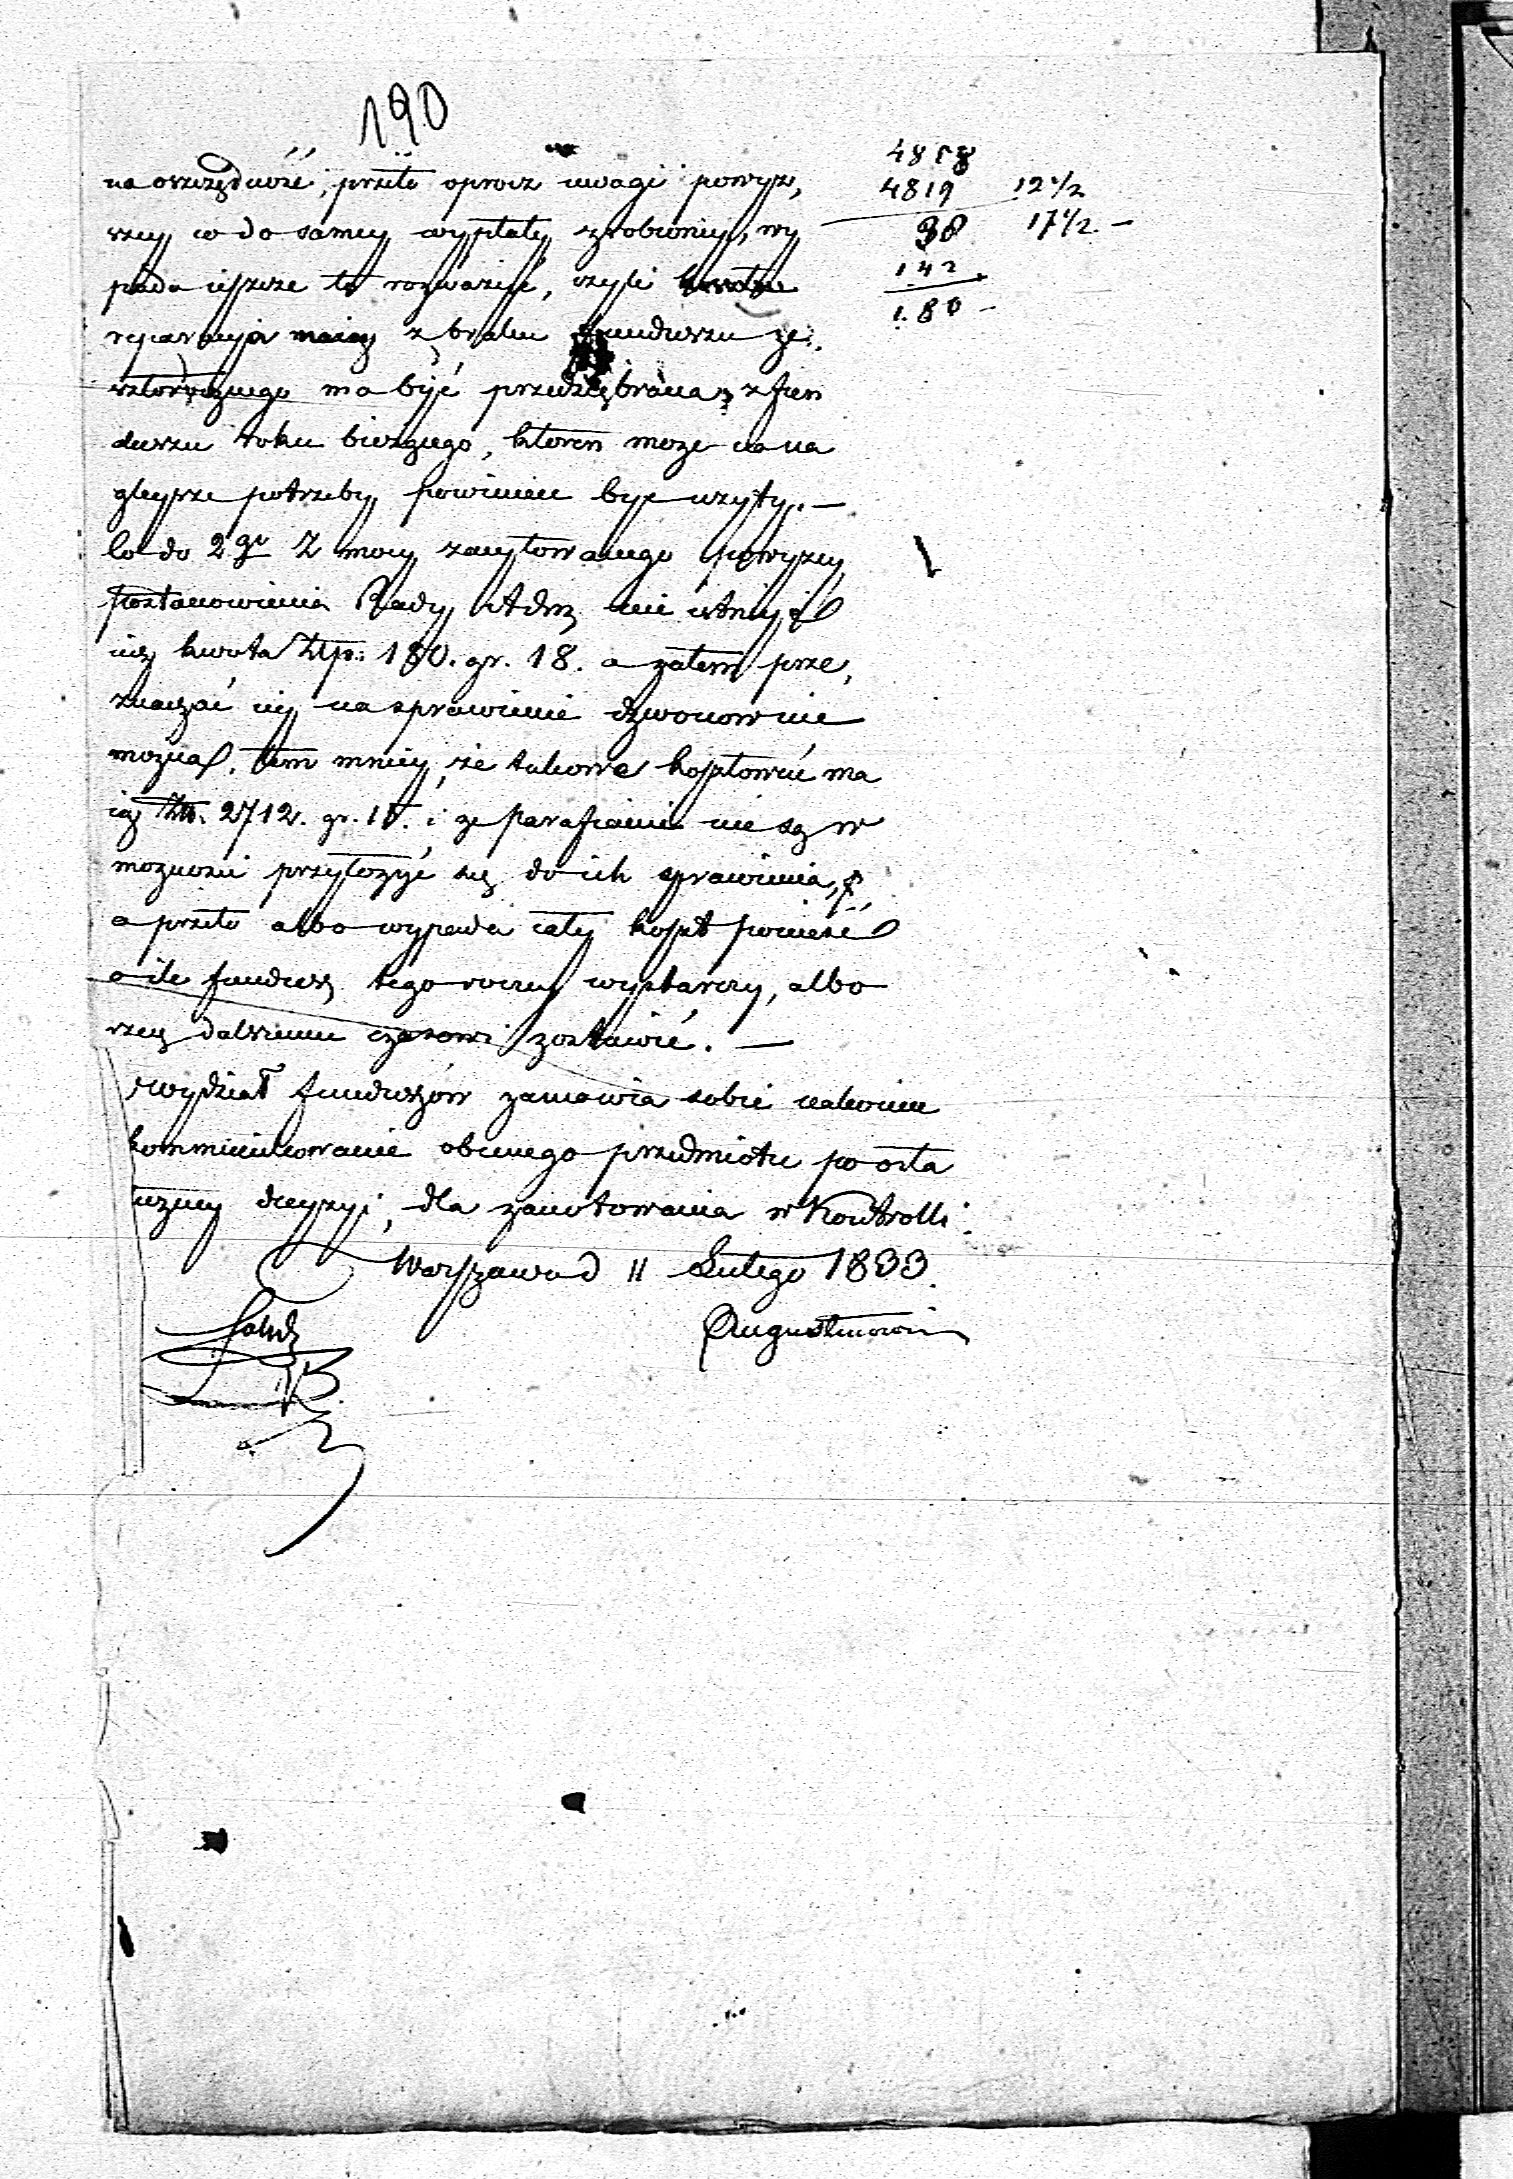 190
na oszczędność, przeto oprocz uwagi powyż,
szey co do samey wypłaty zrobioney, wy
pada ieszcze to rozważyć, czyli
reparacyia maiąc z braku funduszu ze,
szłorocznego ma być przedsiębrana z fun
duszu roku bieżącego, ktoren może na na
gleysze potrzeby powinien być użyty. —
Co do 2go Z mocy zacytowanego powyżey
postanowienia Rady Adm nie istnieje
iuż kwota Złp: 180. gr. 18. a zatem prze,
znaczać iey na sprawienie dzwonow nie
można, tem mniey, że takowe kosztować ma
ią Złp. 2712. gr. i że Parafianie nie są w
możności przyłożyć się do ich sprawienia,
a przeto albo wypada cały koszt ponieść
o ile fundusz tegoroczny wystarczy, albo
rzecz dalszemu czasowi zostawić. —
Wydział funduszów zamawia sobie nakoniec
kommunikowanie obecnego przedmiotu po osta
teczney decyzyi, dla zanotowania w Kontrolli.
Warszawa d 11 Lutego 1833.
Augustinowi
4858
4819 12 1/2
38 17 1/2 —
142
180 —